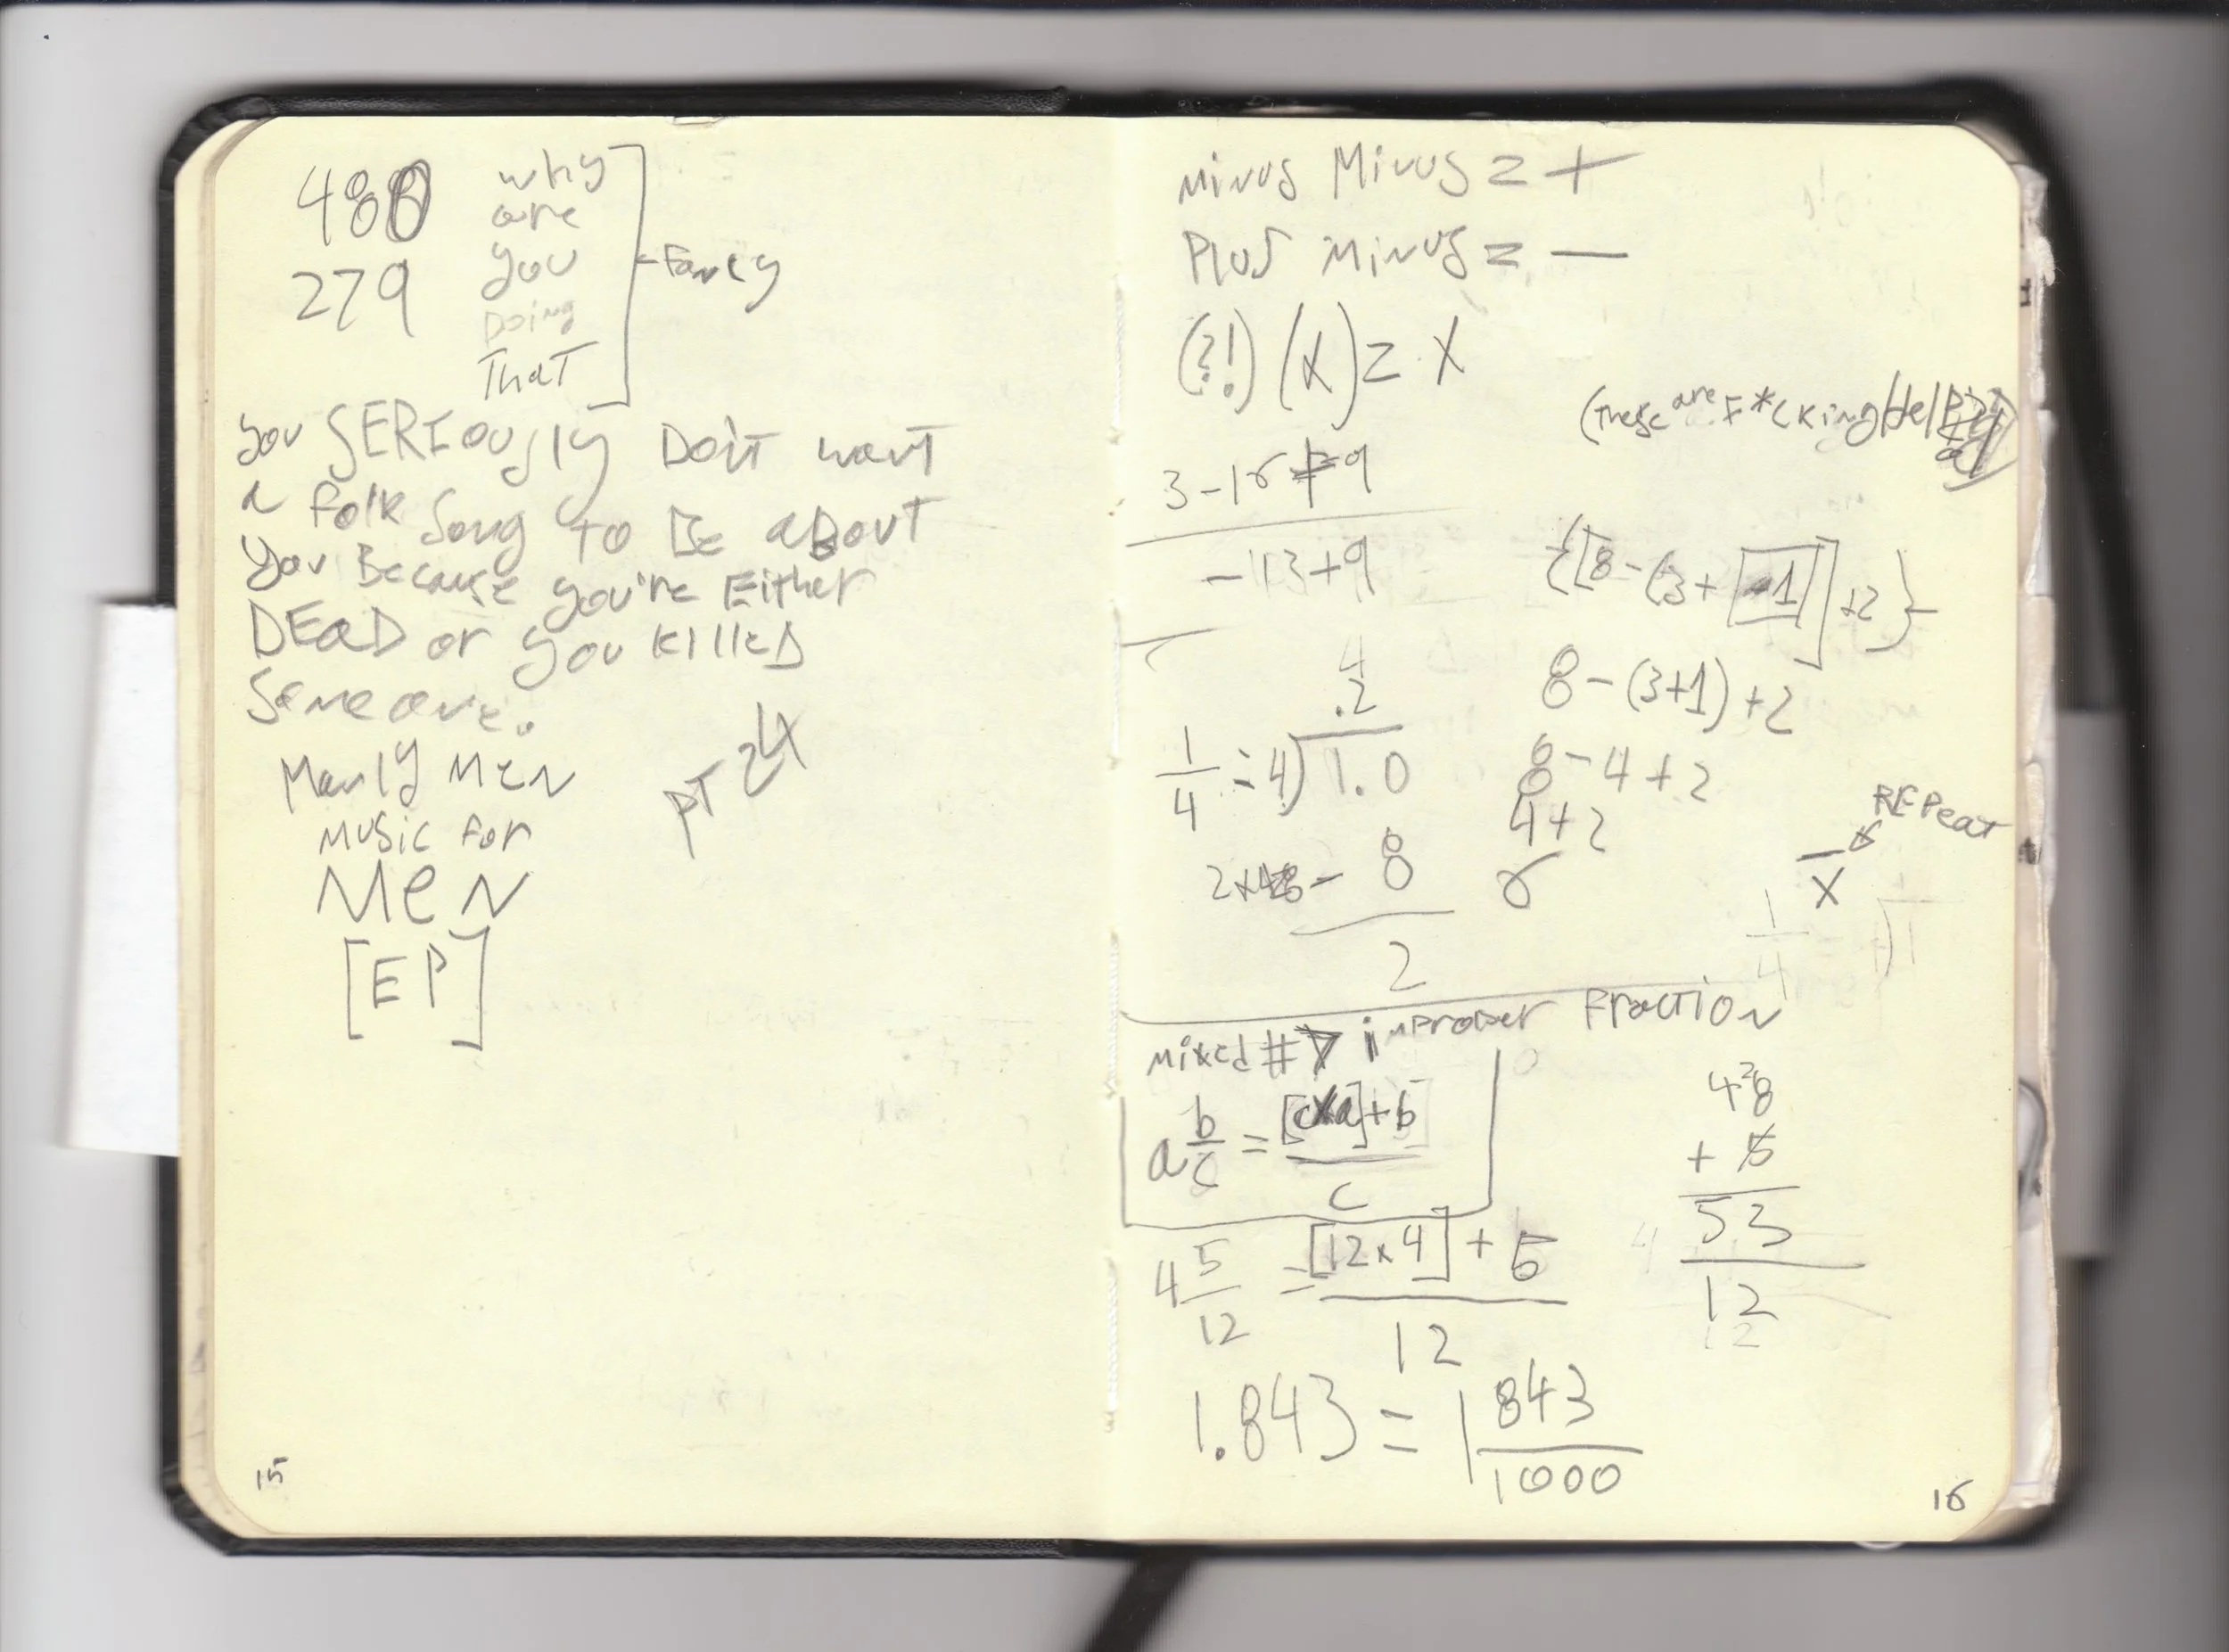 480 why
are
279 you
Doing
That
- Fancy
you SERIOUSly Don't want
a folk Song to BE aBout
you Because you're Either
DEaD or you killeD
Someone.
Manly Men
Music for
Men
[EP]
PT 24
15
minus Minus = +
Plus minus = —
(?!) (x) = x
(These are F*cking
3 - 16 + 9
-13 + 9
{[8 - (3 + -1] + 2}
8 - (3+1) + 2
8 - 4 + 2
4 + 2
6
4
.2
1/4 = 4)1.0
8
2
REPeat
x̄
1/4
mixed # → improper Fraction
a b/c = [cxa]+b / c
4 5/12 = [12x4] + 5 / 12
48
+ 5
53
12
1.843 = 1 843/1000
16